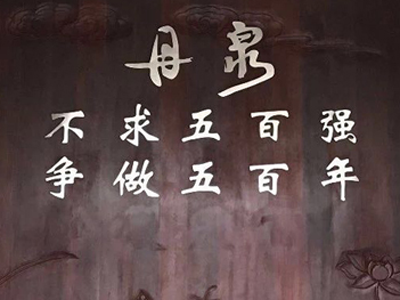 丹泉
不求五百强
争做五百年